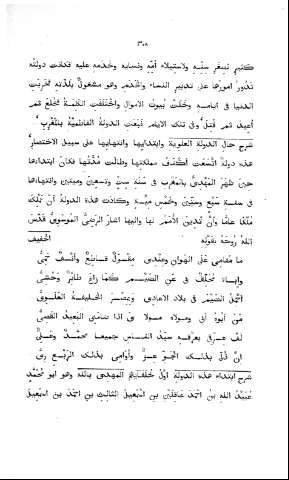 ٣٠٨
كثير لصغر سنّه ولاستيلاء أمّه ونسائه وخدمه عليه فكانت دولته
تدور امورها على تدبير النساء والخدم وهو مشغول بلذّاته فخربت
الدنيا فى ايامه وخلت بيوت الاموال واختلفت الكلمة فخلع ثم
أعيد ثم قتل وفى تلك الايام نبعت الدولة الفاطميّة بالمغرب
شرح حال الدولة العلوية وابتدائها وانتهائها على سبيل الاختصار
هذه دولة اتّسعت أكناف مملكتها وطالت مدّتها فكان ابتداؤها
حين ظهر المهدىّ بالمغرب فى سنة ستّ وتسعين ومئتين وانتهاؤها
فى سنة سبع وستّين وخمس مئة وكادت هذه الدولة أن تملك
ملكا عامّا وأن تدين الأمم لها واليها اشار الرضىّ الموسوىّ قدّس
الله روحه بقوله
الخفيف
ما مقامى على الهوان وعندى مقول قاطع وأنف حمىّ
وإباء محلّق بى عن الضيم كما راغ طائر وحشىّ
أحمل الضيم فى بلاد الاعادى وبمصر الخليفة العلوىّ
من أبوه أبى ومولاه مولاى اذا ضامنى البعيد القصىّ
لفّ عرقى بعرقه سيّد الناس جميعا محمّد وعلىّ
انّ ذلّى بذلك الجوّ عزّ وأوامى بذلك الربع رىّ
شرح ابتداء هذه الدولة اوّل خلفائهم المهدى بالله وهو ابو محمّد
عبيد الله بن احمد بن اسمعيل الثالث بن احمد بن اسمعيل